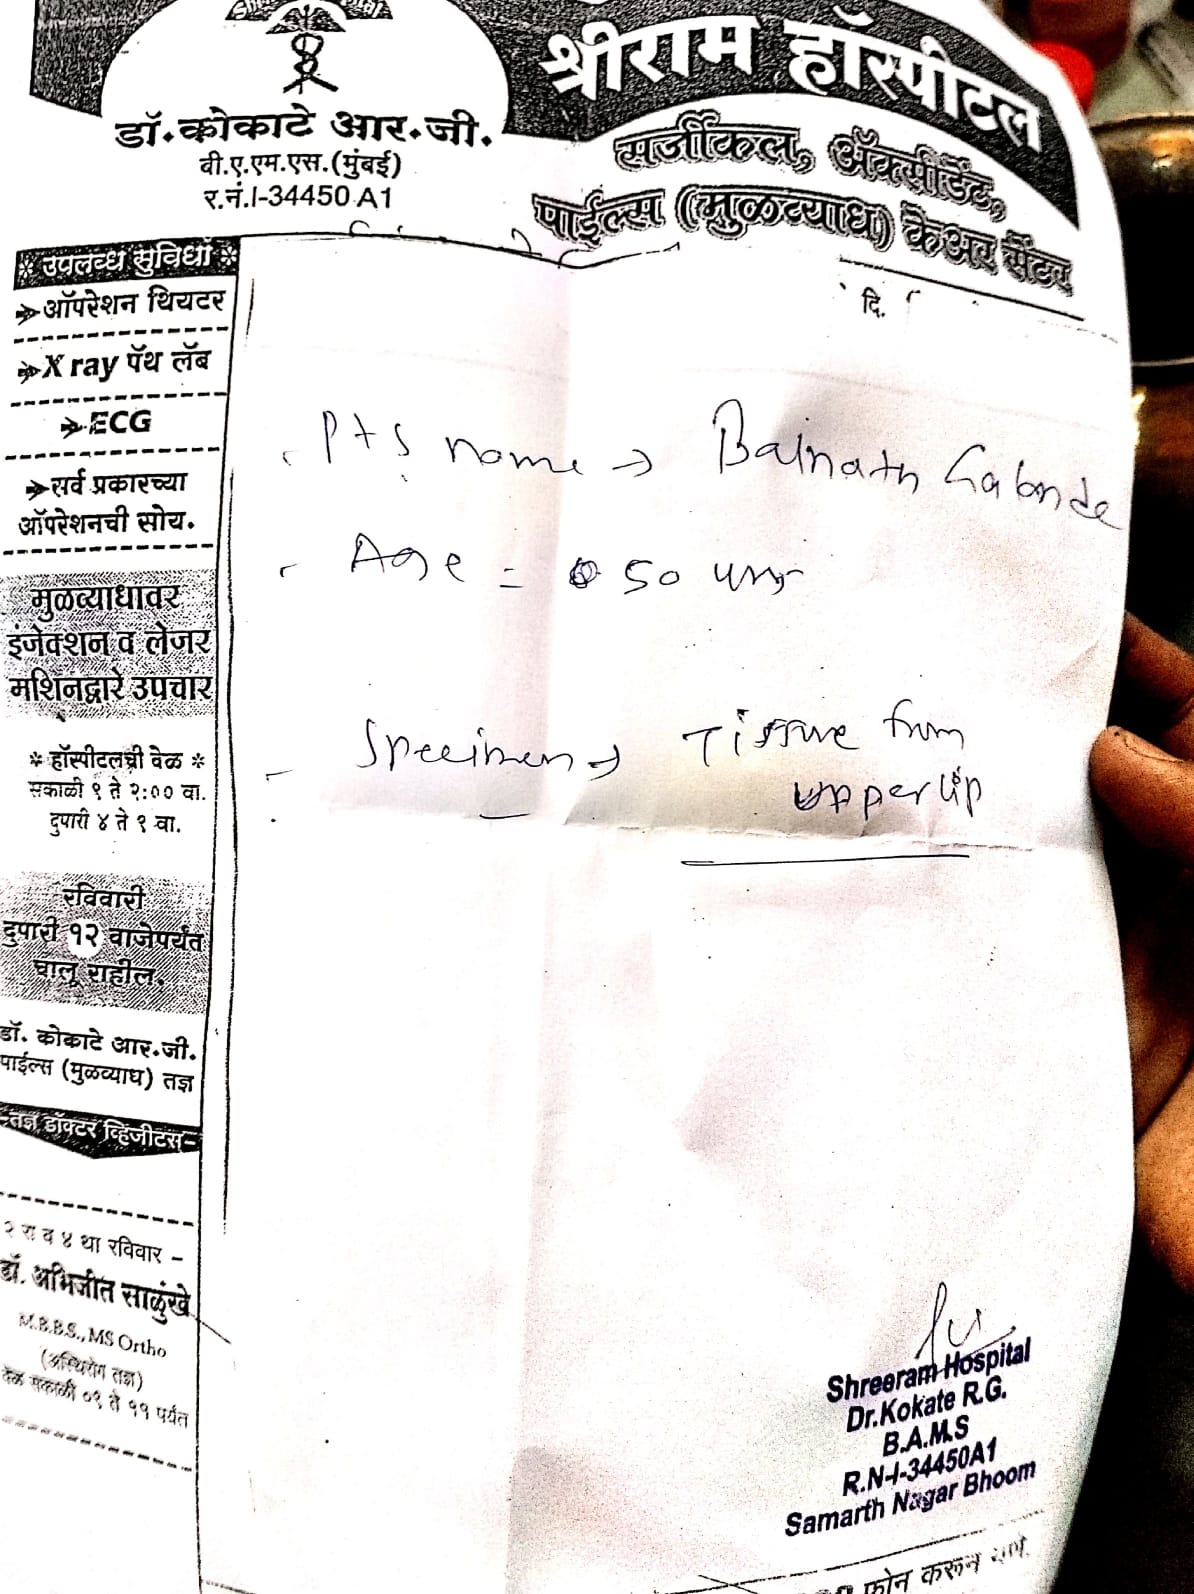 श्रीराम हॉस्पीटल
सर्जीकल, ॲक्सीडेंट,
पाईल्स (मुळव्याध) केअर सेंटर
डॉ.कोकाटे आर.जी.
बी.ए.एम.एस.(मुंबई)
र.नं.I-34450 A1
दि.
* उपलब्ध सुविधा *
ऑपरेशन थियटर
X ray पॅथ लॅब
ECG
सर्व प्रकारच्या
ऑपरेशनची सोय.
मुळव्याधावर
इंजेक्शन व लेजर
मशिनद्वारे उपचार
* हॉस्पीटलची वेळ *
सकाळी ९ ते २:०० वा.
दुपारी ४ ते ९ वा.
रविवारी
दुपारी १२ वाजेपर्यंत
चालू राहील.
डॉ. कोकाटे आर.जी.
पाईल्स (मुळव्याध) तज्ञ
-तज्ञ डॉक्टर व्हिजीटस-
२ रा व ४ था रविवार -
डॉ. अभिजीत साळुंखे
M.B.B.S., MS Ortho
(अस्थिरोग तज्ञ)
वेळ सकाळी ०९ ते ११ पर्यंत
Pts name → Balnath Gabnde
Age = 50 yrs
Specimen → Tissue from
upper lip
Shreeram Hospital
Dr.Kokate R.G.
B.A.M.S
R.N-I-34450A1
Samarth Nagar Bhoom
फोन करून